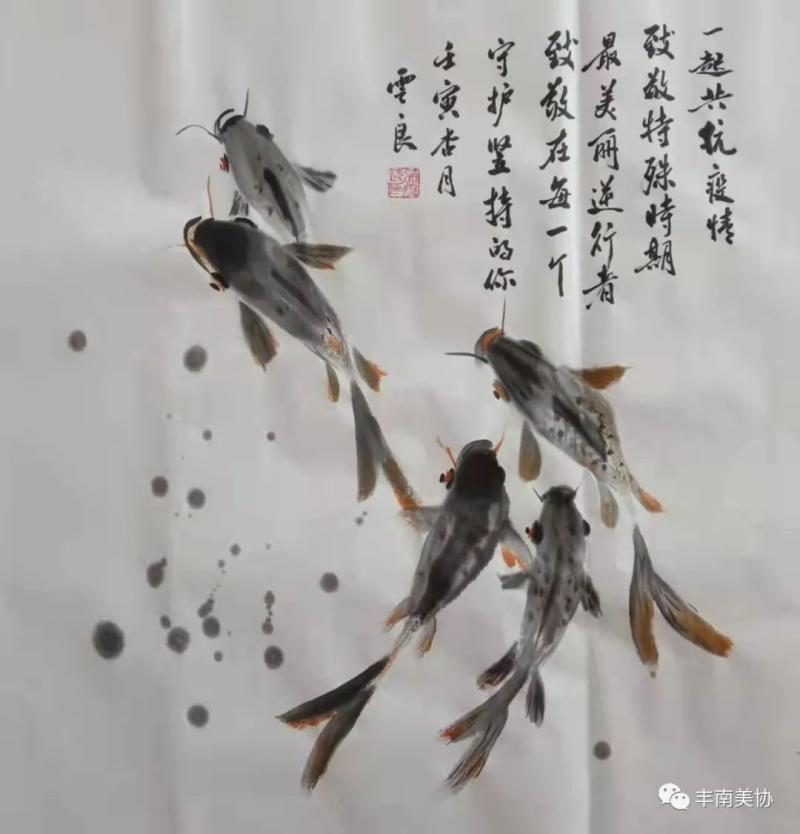 一起共抗疫情
致敬特殊時期
最美丽逆行者
致敬在每一个
守护竖持的你
壬寅杏月
雲良
丰南美协